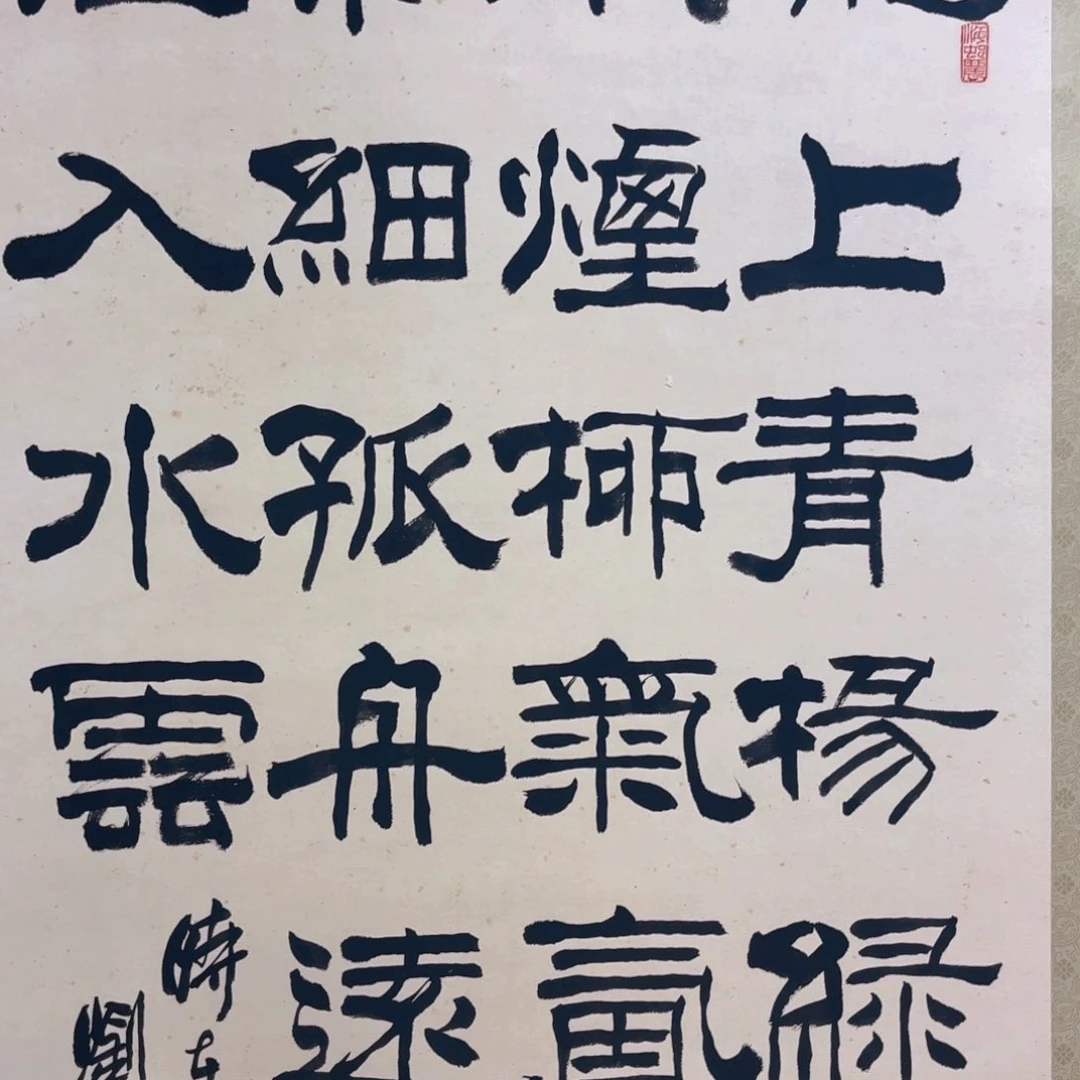 上青楊綠
煙柳氣
細孤舟遠
入水雲
時在
劉